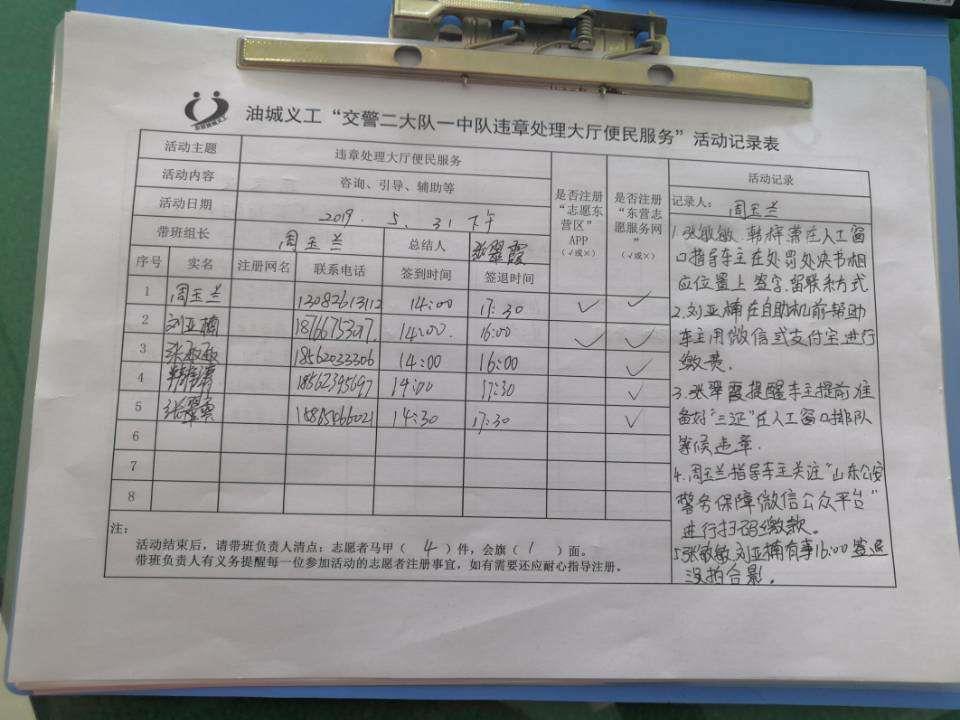 油城义工“交警二大队一中队违章处理大厅便民服务”活动记录表
活动主题 违章处理大厅便民服务
活动内容 咨询、引导、辅助等
活动日期 2019. 5. 31 下午
带班组长 周玉兰 总结人 张翠霞
是否注册“志愿东营区”APP（√或×）
是否注册“东营志愿服务网”（√或×）
序号 实名 注册网名 联系电话 签到时间 签退时间
1 周玉兰 13082613112 14:00 17:30 √ √
2 刘亚楠 14:00 16:00 √ √
3 张敏敏 18562033306 14:00 16:00 √
4 18562395697 14:00 17:30 √
5 张翠霞 14:30 17:30 √
6
7
8
注：
活动结束后，请带班负责人清点：志愿者马甲（ 4 ）件，会旗（ 1 ）面。
带班负责人有义务提醒每一位参加活动的志愿者注册事宜，如有需要还应耐心指导注册。
活动记录
记录人： 周玉兰
1.张敏敏、韩梓萧在人工窗
口指导车主在处罚处决书相
应位置上签字，留联系方式
2.刘亚楠在自助机前帮助
车主用微信或支付宝进行
缴费.
3.张翠霞提醒车主提前准
备好“三证”在人工窗口排队
等候违章.
4.周玉兰指导车主关注“山东公安
警务保障微信公众平台”
进行扫码缴款。
5张敏敏刘亚楠有事16:00签退
没拍合影.